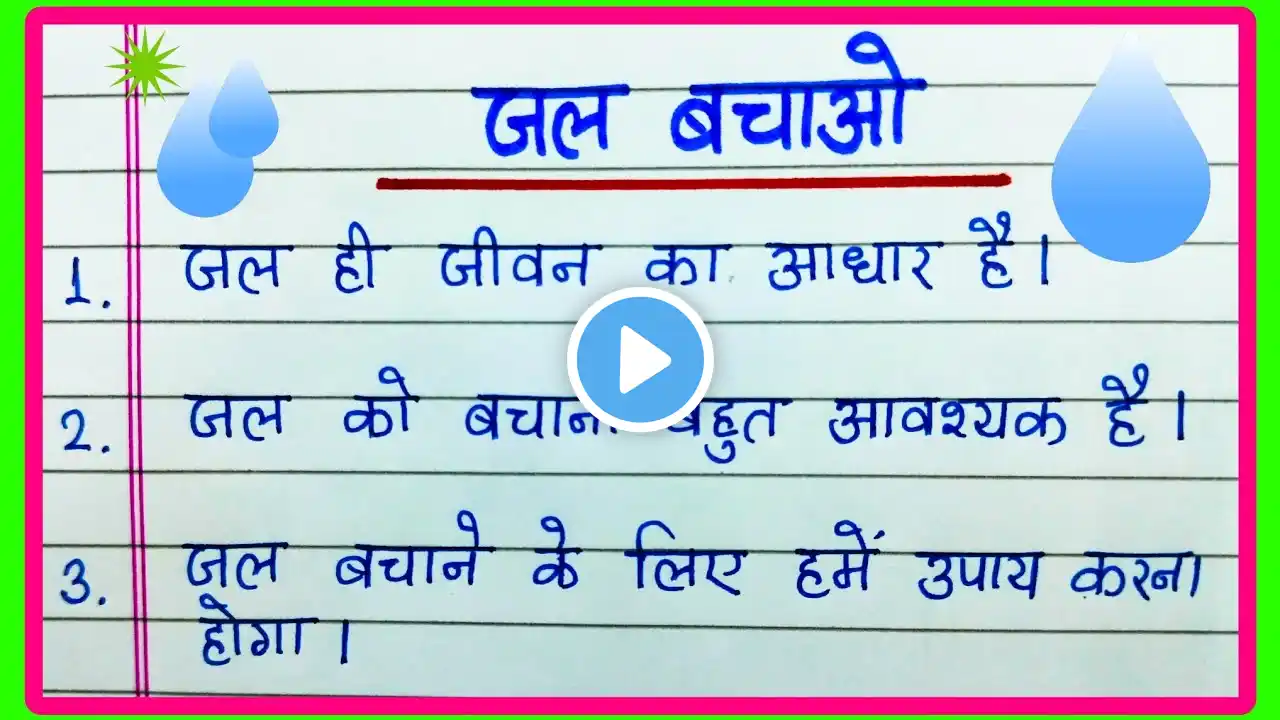 जल बचाओ
1. जल ही जीवन का आधार है।
2. जल को बचाना बहुत आवश्यक है।
3. जल बचाने के लिए हमें उपाय करना
होगा।